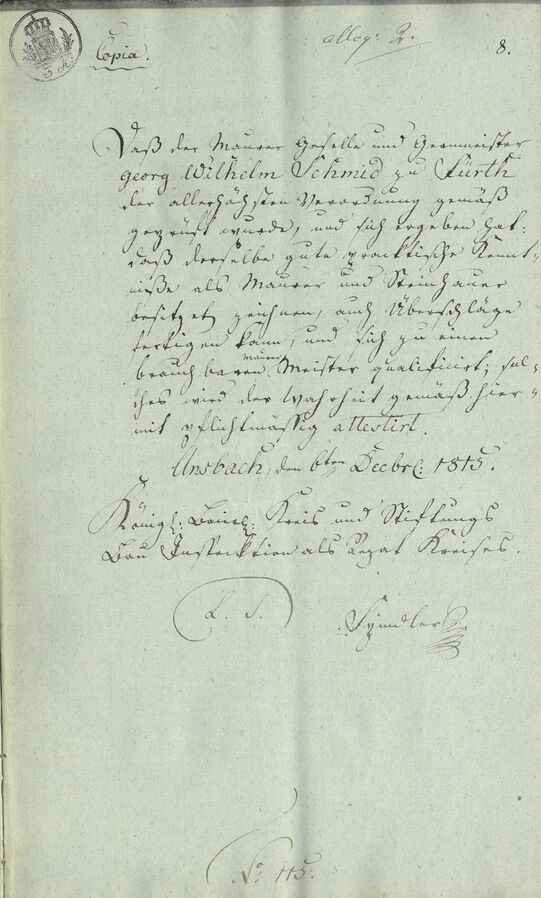 3 Kr.
Copia.
alleg: 2.
8.
Daß der Maurer Geselle und Germeister
Georg Wilhelm Schmid zu Fürth
der allerhöchsten Verordnung gemäß
geprüft wurde, und sich ergeben hat:
daß derselbe gute practische Kennt-
niße als Maurer und Steinhauer
besitzet, zeichnen, auch Überschläge
fertigen kann, und sich zu einen
brauchbaren Maurer Meister qualificirt; sol-
ches wird der Wahrheit gemäß hier-
mit pflichtmässig attestirt.
Ansbach, den 6ten Decbr: 1815.
Königl: Baier: Kreis und Stiftungs
Bau Inspecktion als Rezat Kreises.
L. S.
No 115.